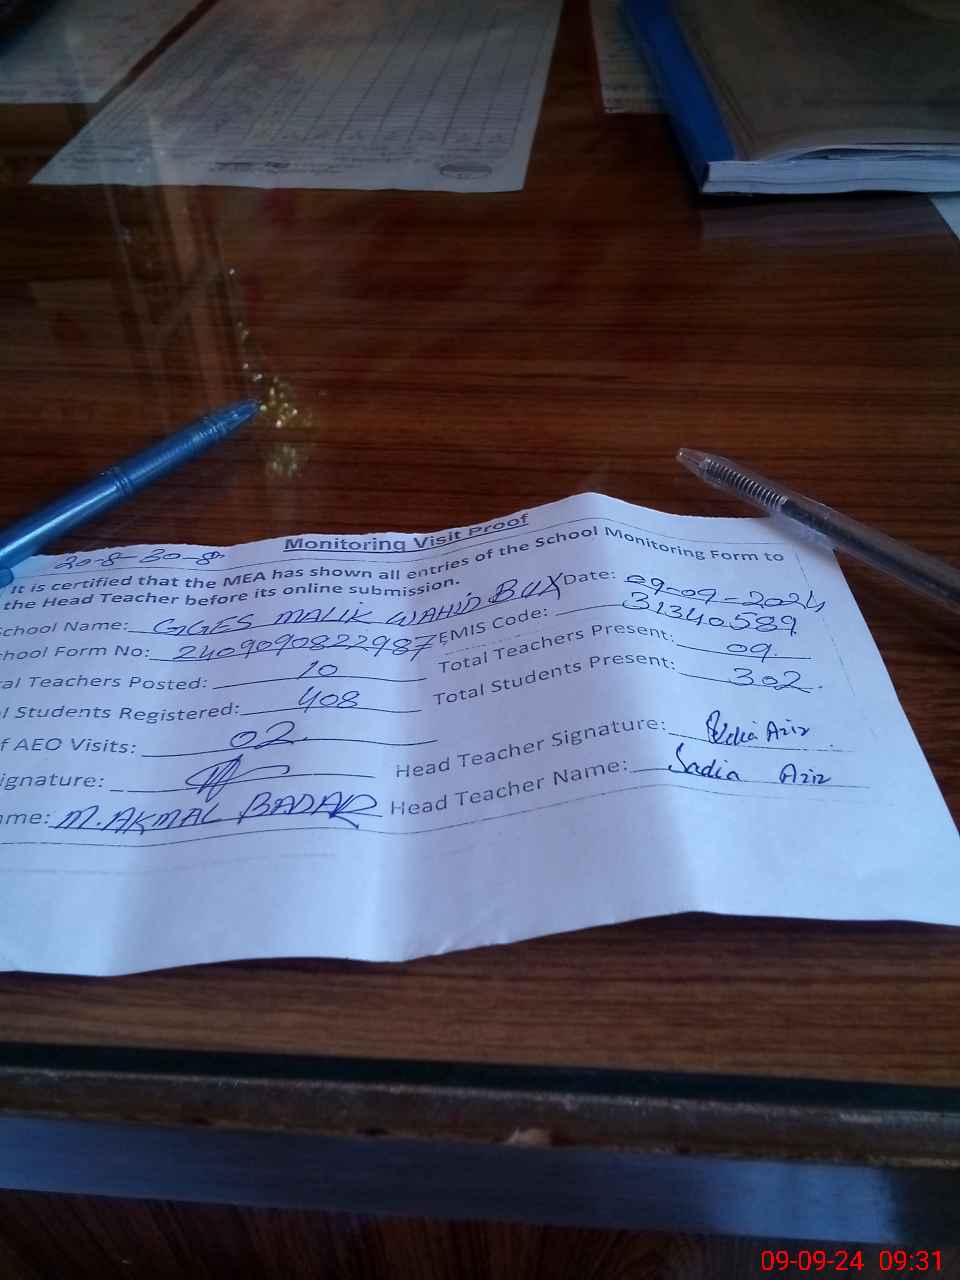 Monitoring Visit Proof
20-8-30-8
It is certified that the MEA has shown all entries of the School Monitoring Form to
the Head Teacher before its online submission.
School Name: GGES MALIK WAHID BUX Date: 09-09-2024
hool Form No: 2409090822987 EMIS Code: 31340589
al Teachers Posted: 10 Total Teachers Present: 09
l Students Registered: 408 Total Students Present: 302
f AEO Visits: 02
ignature: Head Teacher Signature: Sadia Aziz
me: M. AKMAL BADAR Head Teacher Name: Sadia Aziz
09-09-24 09:31